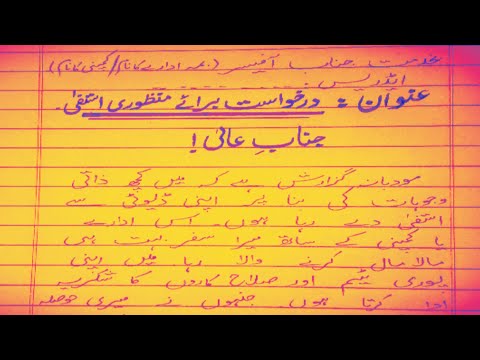 بخدمت جناب آفیسر (بمعہ ادارے کا نام/کمپنی کا نام)
ایڈریس
عنوان: درخواست برائے منظوری استعفیٰ۔
جنابِ عالی!
مودبانہ گزارش ہے کہ میں کچھ ذاتی
وجوہات کی بنا پر اپنی ڈیوٹی سے
استعفیٰ دے رہا ہوں۔ اس ادارے
یا کمپنی کے ساتھ میرا سفر بہت ہی
مالا مال کرنے والا رہا۔ میں اپنی
پوری ٹیم اور صلاح کاروں کا شکریہ
ادا کرتا ہوں۔ جنہوں نے میری حوصلہ